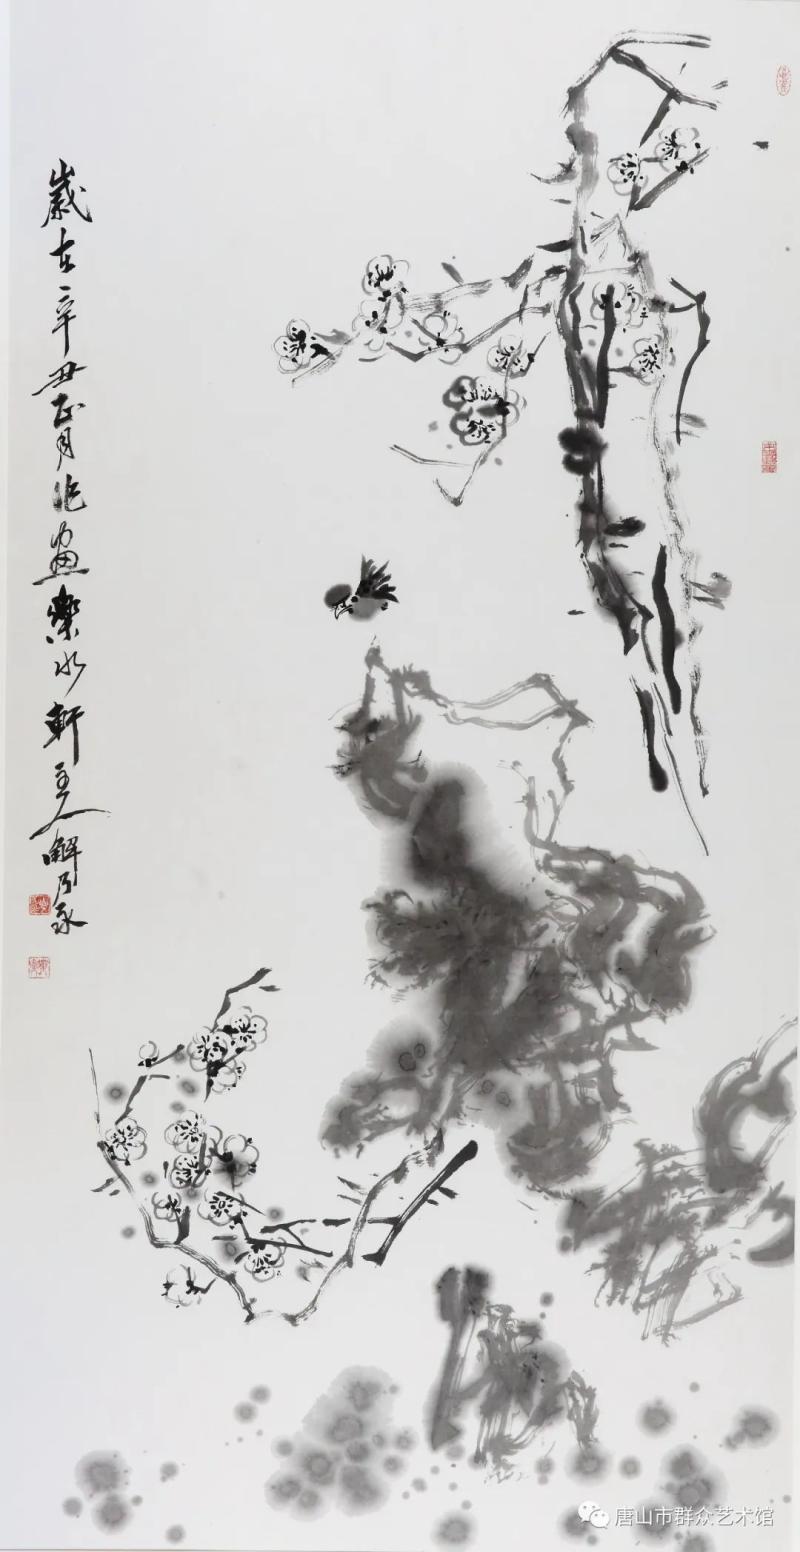 歲在辛丑正月作畫樂水軒主人解乃永
唐山市群众艺术馆